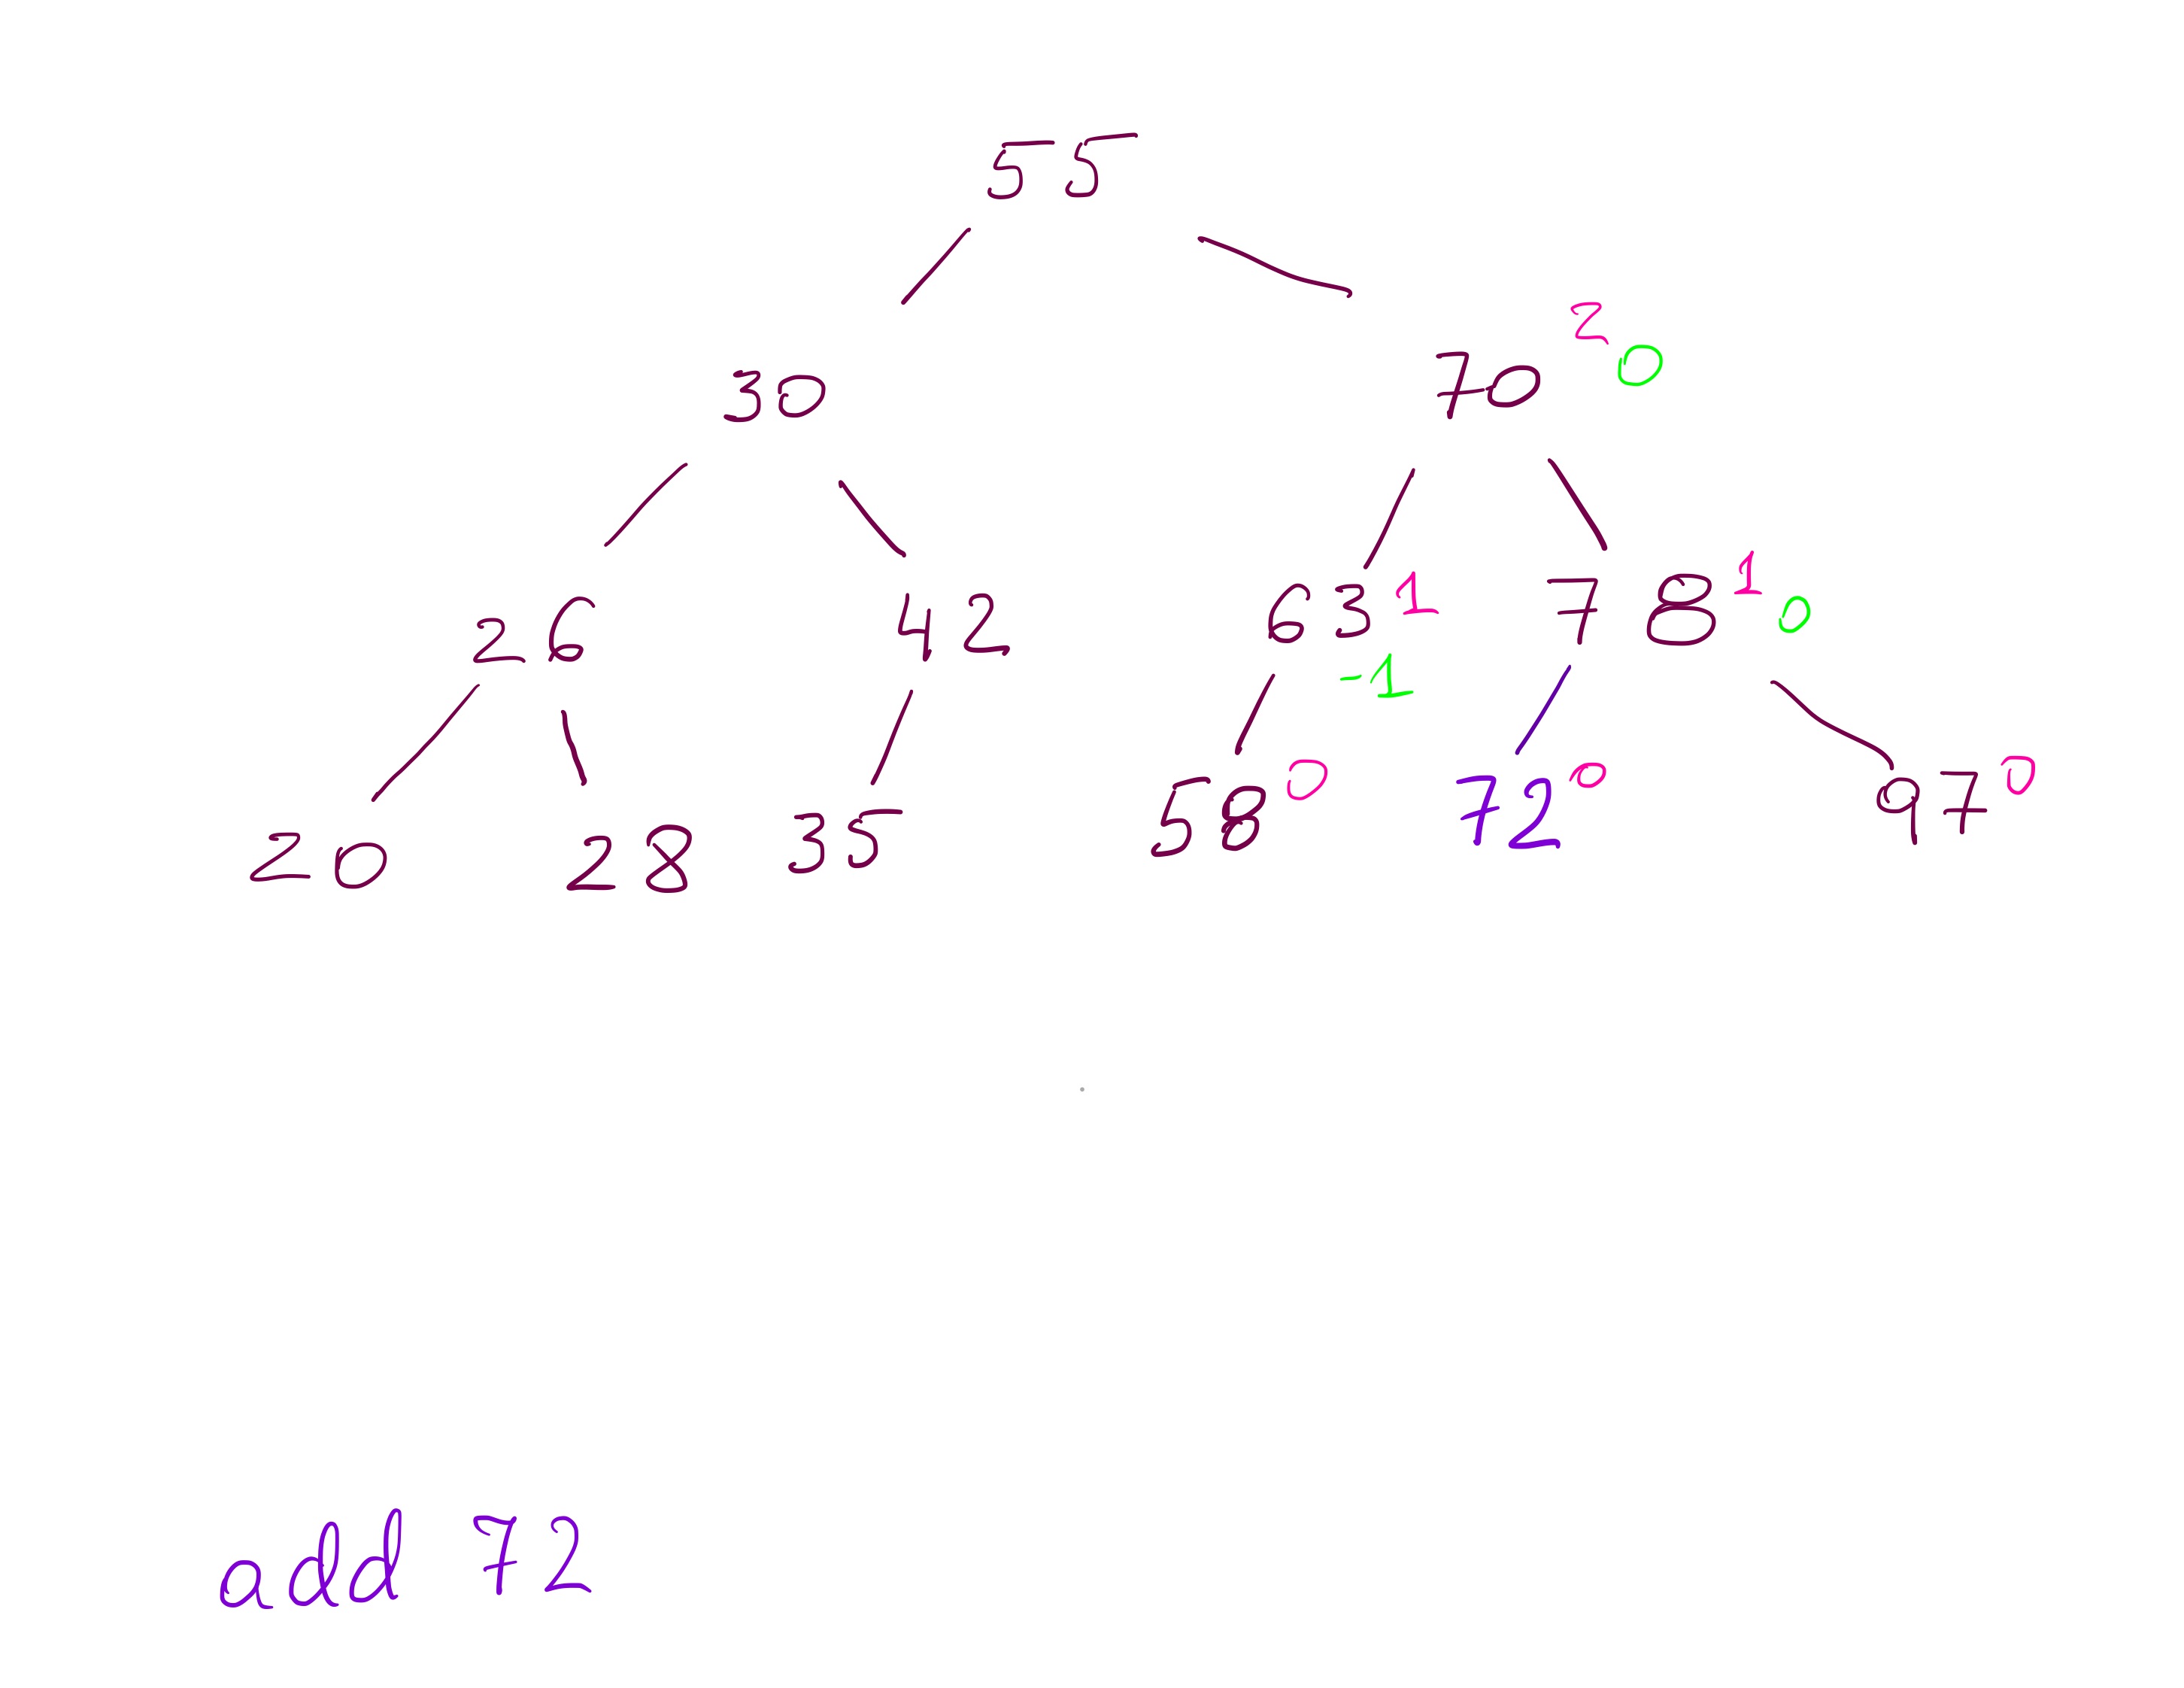 55
30 70 2 0
26 42 63 1 -1 78 1 0
20 28 35 58 0 72 0 97 0
add 72